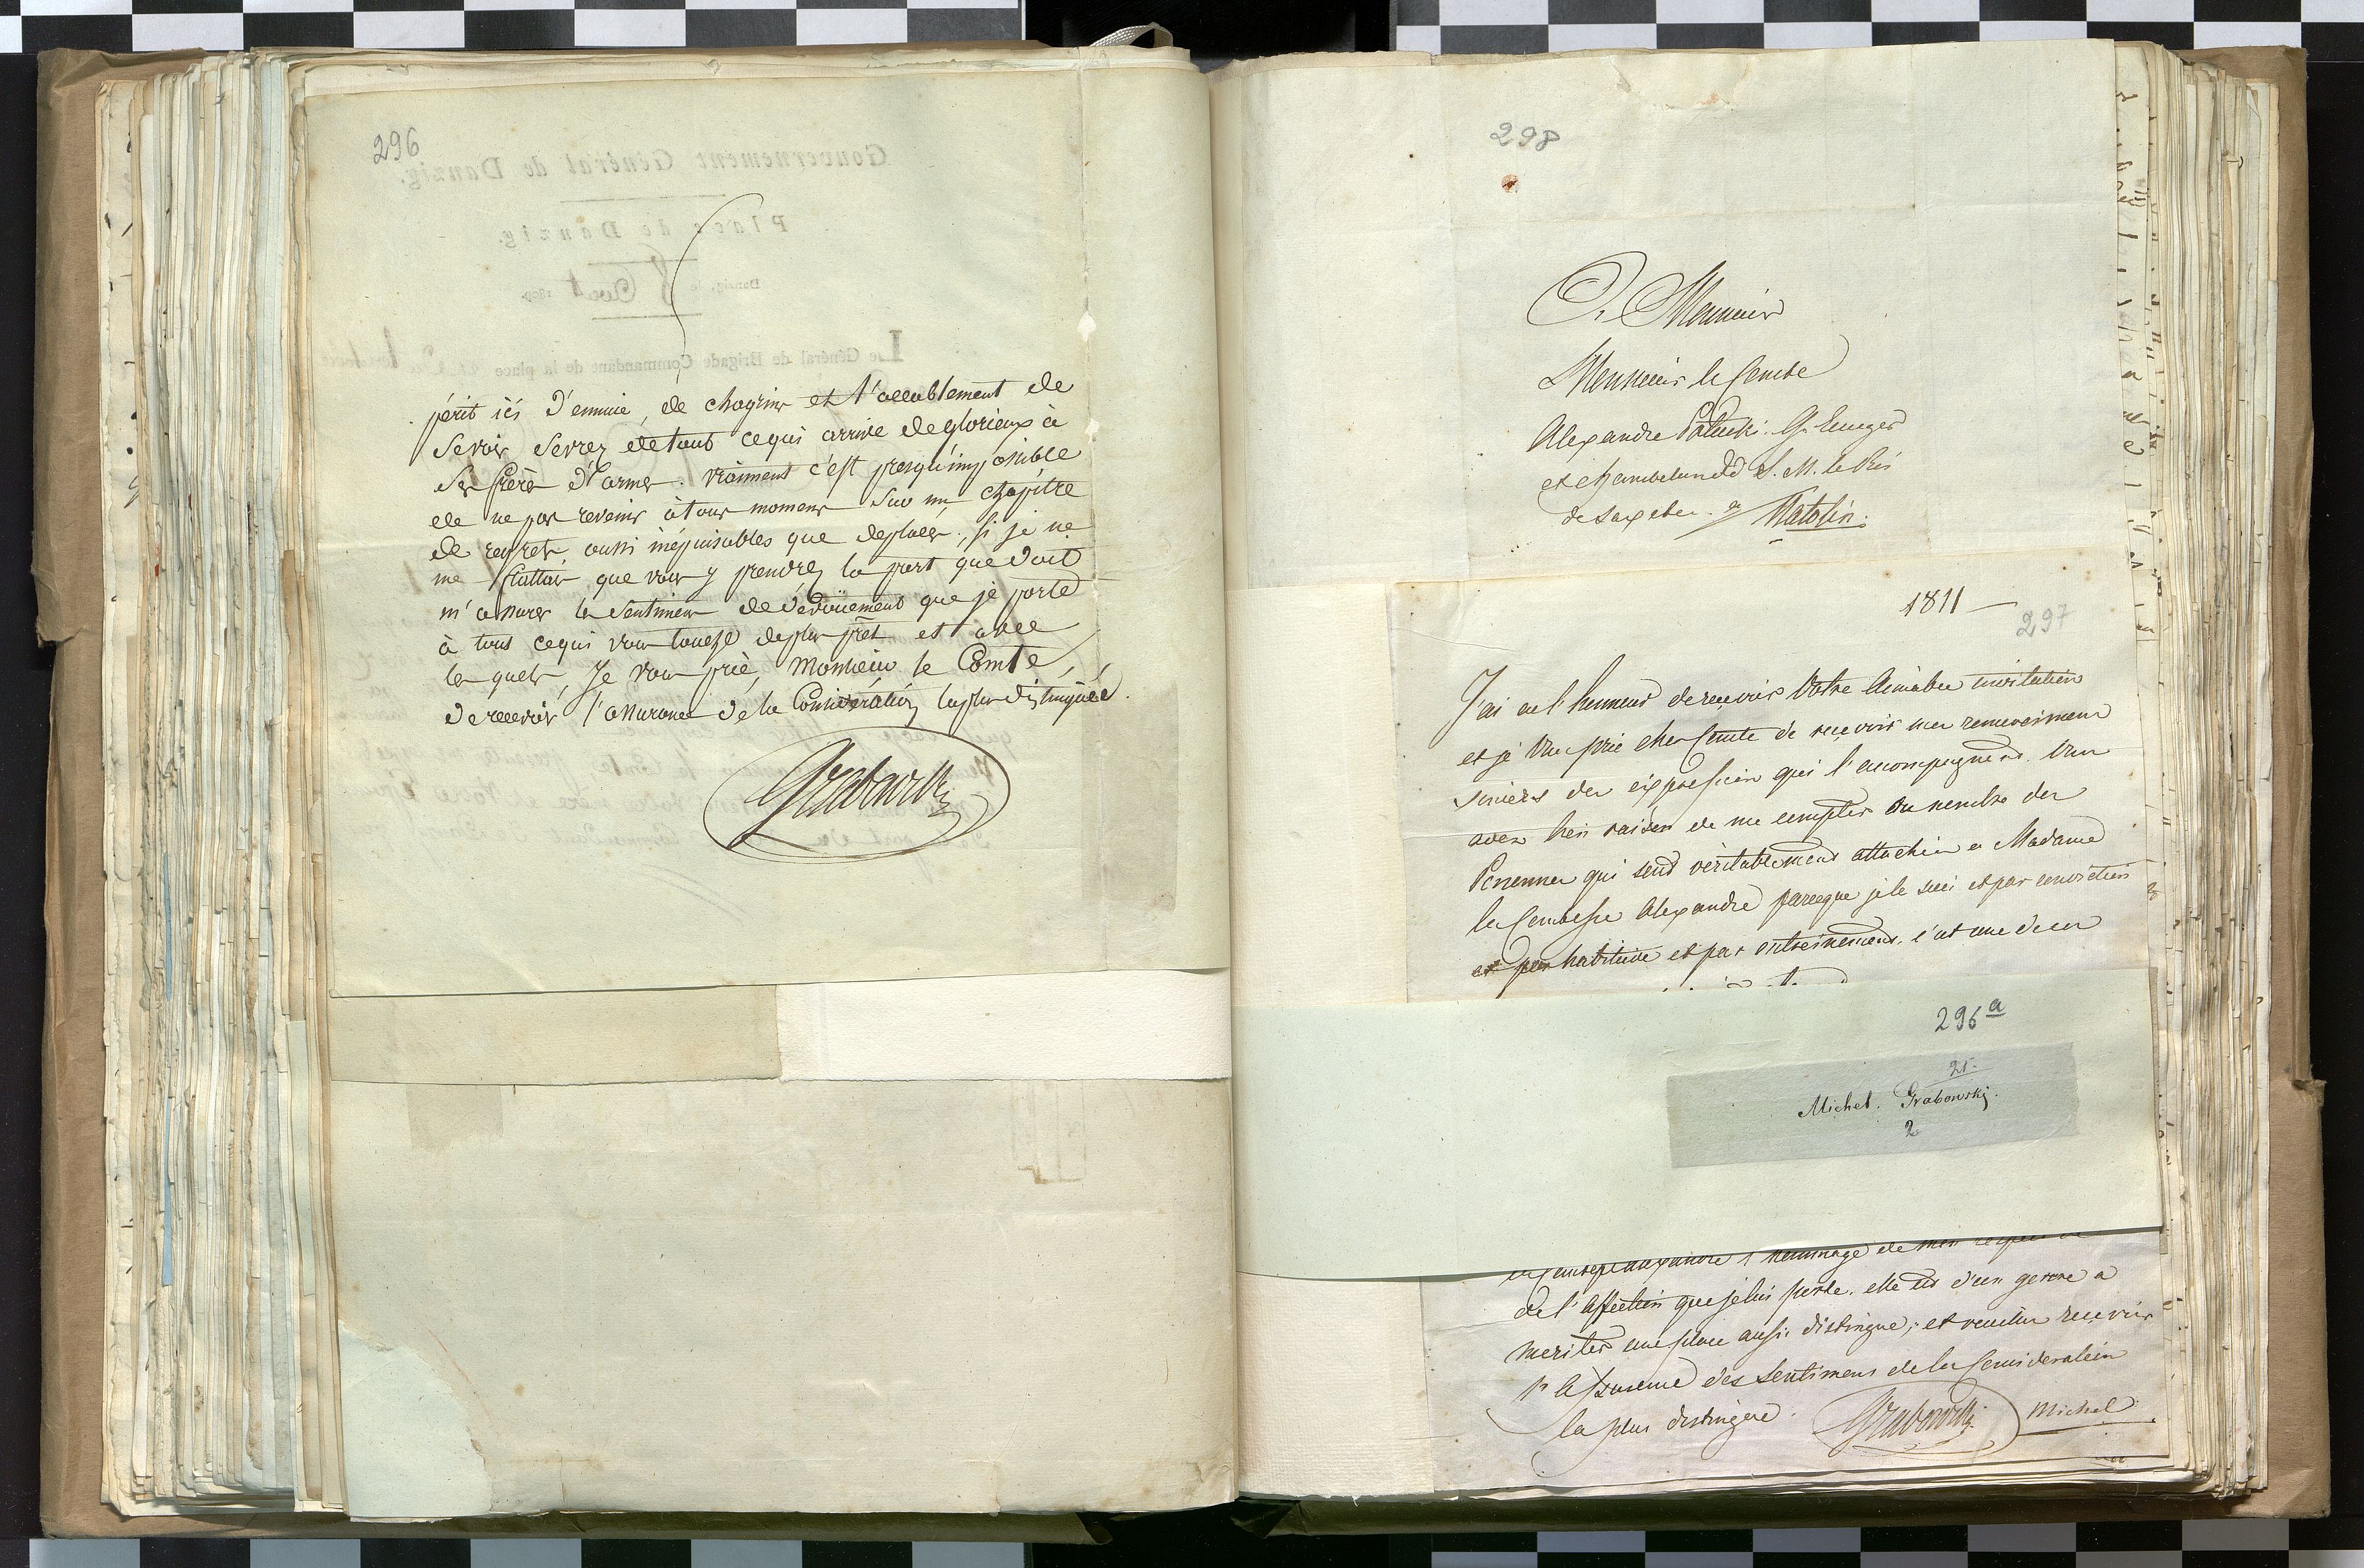 296
périt ici d'ennuie, de chagrins et l'accablement de
se voir sevrez de tout ce qui arrive de glorieux à
ses frères d'armes. vraiment c'est presqu'imposible
de ne pas revenir à tous momens sur un chapitre
de regrets aussi inépuisables que deplacés, si je ne
me flattais que vous y prendrez la part que doit
m'assurer les sentimens de dévouëment que je porte
à tous ce qui vous touche de plus prêt et avec
les quels, Je vous prie, Monsieur le Comte,
de recevoir l'assurance de la Considération la plus distinguée.
Grabowski
298
A Monsieur
Monsieur le Comte
Alexandre Potocki G. Ecuyer
et Chambelan de S. M. le Roi
de Saxe &c. a Natolin.
1811 —
297
J'ai eu l'honneur de recevoir Votre Aimable invitation
et je Vous prie cher Comte de recevoir mes remercimens
sinceres des expression qui l'accompagnent. Vous
avez bien raison de me compter au nombre des
Personnes qui sont véritablement attachées a Madame
la Comtesse Alexandre parceque je le suis et par conviction
et par habitude et par entrainement. c'est une de ces
296 a
21.
Michel. Grabowski.
2
la Comtesse Alexandre l'hommage de mon respect
de l'Affection que je lui porte. elle est d'un genre a
meriter une place aussi distingue; et veuillez recevoir
l'Assurence des sentimens de la Consideration
la plus distingere.
Grabowski Michel